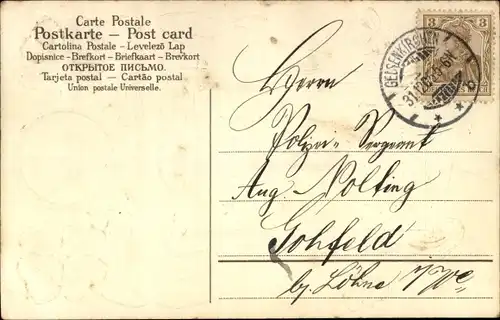 Carte Postale
Postkarte — Post card
Cartolina Postale - Levelező Lap
Dopisnice - Brefkort - Briefkaart - Brevkort
ОТКРЫТОЕ ПИСЬМО.
Tarjeta postal — Cartão postal
Union postale Universelle.
3 3
GELSENKIRCHEN
31.12.
Herrn
Polizei-Sergeant
Aug. Nolting
Gohfeld
by. Löhne i/W.